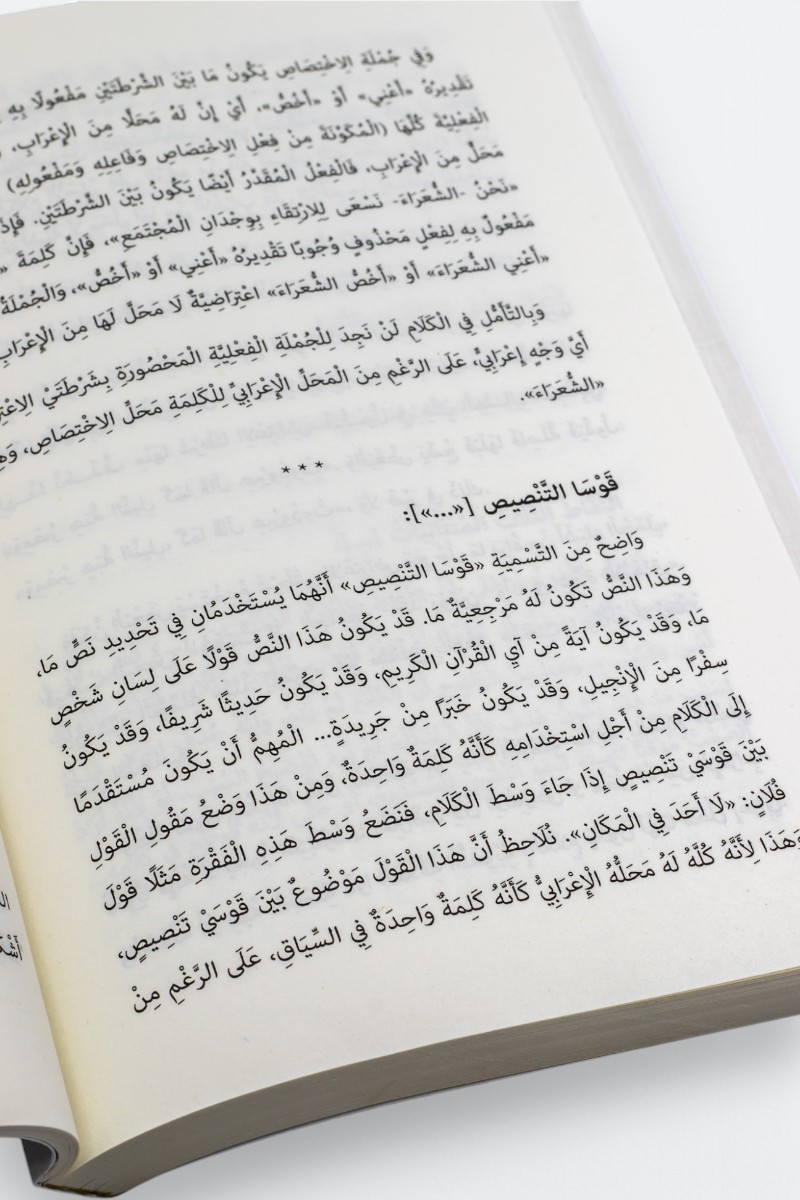 وَفِي جُمْلَةِ الِاخْتِصَاصِ يَكُونُ مَا بَيْنَ الشَّرْطَتَيْنِ مَفْعُولًا بِهِ
تَقْدِيرُهُ «أَعْنِي» أَوْ «أَخُصُّ»، أَيْ إِنَّ لَهُ مَحَلًّا مِنَ الْإِعْرَابِ،
الْفِعْلِيَّةَ كُلَّهَا (الْمُكَوَّنَةَ مِنْ فِعْلِ الِاخْتِصَاصِ وَفَاعِلِهِ وَمَفْعُولِهِ)
مَحَلَّ مِنَ الْإِعْرَابِ، فَالْفِعْلُ الْمُقَدَّرُ أَيْضًا يَكُونُ بَيْنَ الشَّرْطَتَيْنِ. فَإِذَا
«نَحْنُ -الشُّعَرَاءَ- نَسْعَى لِلِارْتِقَاءِ بِوِجْدَانِ الْمُجْتَمَعِ»، فَإِنَّ كَلِمَةَ
مَفْعُولٌ بِهِ لِفِعْلٍ مَحْذُوفٍ وُجُوبًا تَقْدِيرُهُ «أَعْنِي» أَوْ «أَخُصُّ»، وَالْجُمْلَةُ
«أَعْنِي الشُّعَرَاءَ» أَوْ «أَخُصُّ الشُّعَرَاءَ» اعْتِرَاضِيَّةٌ لَا مَحَلَّ لَهَا مِنَ الْإِعْرَابِ
وَبِالتَّأَمُّلِ فِي الْكَلَامِ لَنْ نَجِدَ لِلْجُمْلَةِ الْفِعْلِيَّةِ الْمَحْصُورَةِ بِشَرْطَتَيْ
أَيَّ وَجْهٍ إِعْرَابِيٍّ، عَلَى الرَّغْمِ مِنَ الْمَحَلِّ الْإِعْرَابِيِّ لِلْكَلِمَةِ مَحَلِّ الِاخْتِصَاصِ،
«الشُّعَرَاءَ».
***
قَوْسَا التَّنْصِيصِ [«...»]:
وَاضِحٌ مِنَ التَّسْمِيَةِ «قَوْسَا التَّنْصِيصِ» أَنَّهُمَا يُسْتَخْدَمَانِ فِي تَحْدِيدِ نَصٍّ مَا،
وَهَذَا النَّصُّ تَكُونُ لَهُ مَرْجِعِيَّةٌ مَا. قَدْ يَكُونُ هَذَا النَّصُّ قَوْلًا عَلَى لِسَانِ شَخْصٍ
مَا، وَقَدْ يَكُونُ آيَةً مِنْ آيِ الْقُرْآنِ الْكَرِيمِ، وَقَدْ يَكُونُ حَدِيثًا شَرِيفًا، وَقَدْ يَكُونُ
سِفْرًا مِنَ الْإِنْجِيلِ، وَقَدْ يَكُونُ خَبَرًا مِنْ جَرِيدَةٍ... الْمُهِمُّ أَنْ يَكُونَ مُسْتَقْدَمًا
إِلَى الْكَلَامِ مِنْ أَجْلِ اسْتِخْدَامِهِ كَأَنَّهُ كَلِمَةٌ وَاحِدَةٌ، وَمِنْ هَذَا وَضْعُ مَقُولِ الْقَوْلِ
بَيْنَ قَوْسَيْ تَنْصِيصٍ إِذَا جَاءَ وَسْطَ الْكَلَامِ، فَنَضَعُ وَسْطَ هَذِهِ الْفَقْرَةِ مَثَلًا قَوْلَ
فُلَانٍ: «لَا أَحَدَ فِي الْمَكَانِ». نُلَاحِظُ أَنَّ هَذَا الْقَوْلَ مَوْضُوعٌ بَيْنَ قَوْسَيْ تَنْصِيصٍ،
وَهَذَا لِأَنَّهُ كُلَّهُ لَهُ مَحَلُّهُ الْإِعْرَابِيُّ كَأَنَّهُ كَلِمَةٌ وَاحِدَةٌ فِي السِّيَاقِ، عَلَى الرَّغْمِ مِنْ